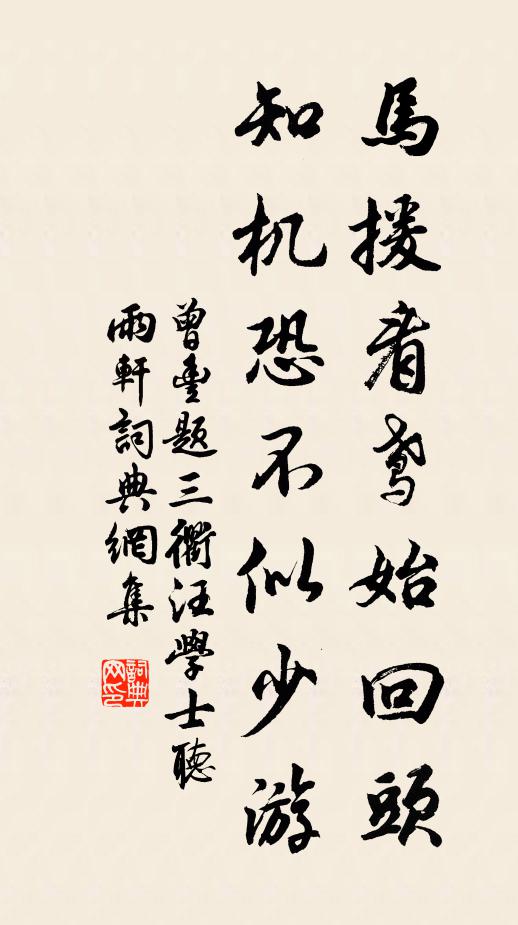 馬援看鸢始回頭
知机恐不似少游
曾豐題三衢汪學士聽
雨軒詞典網集
詞典网印